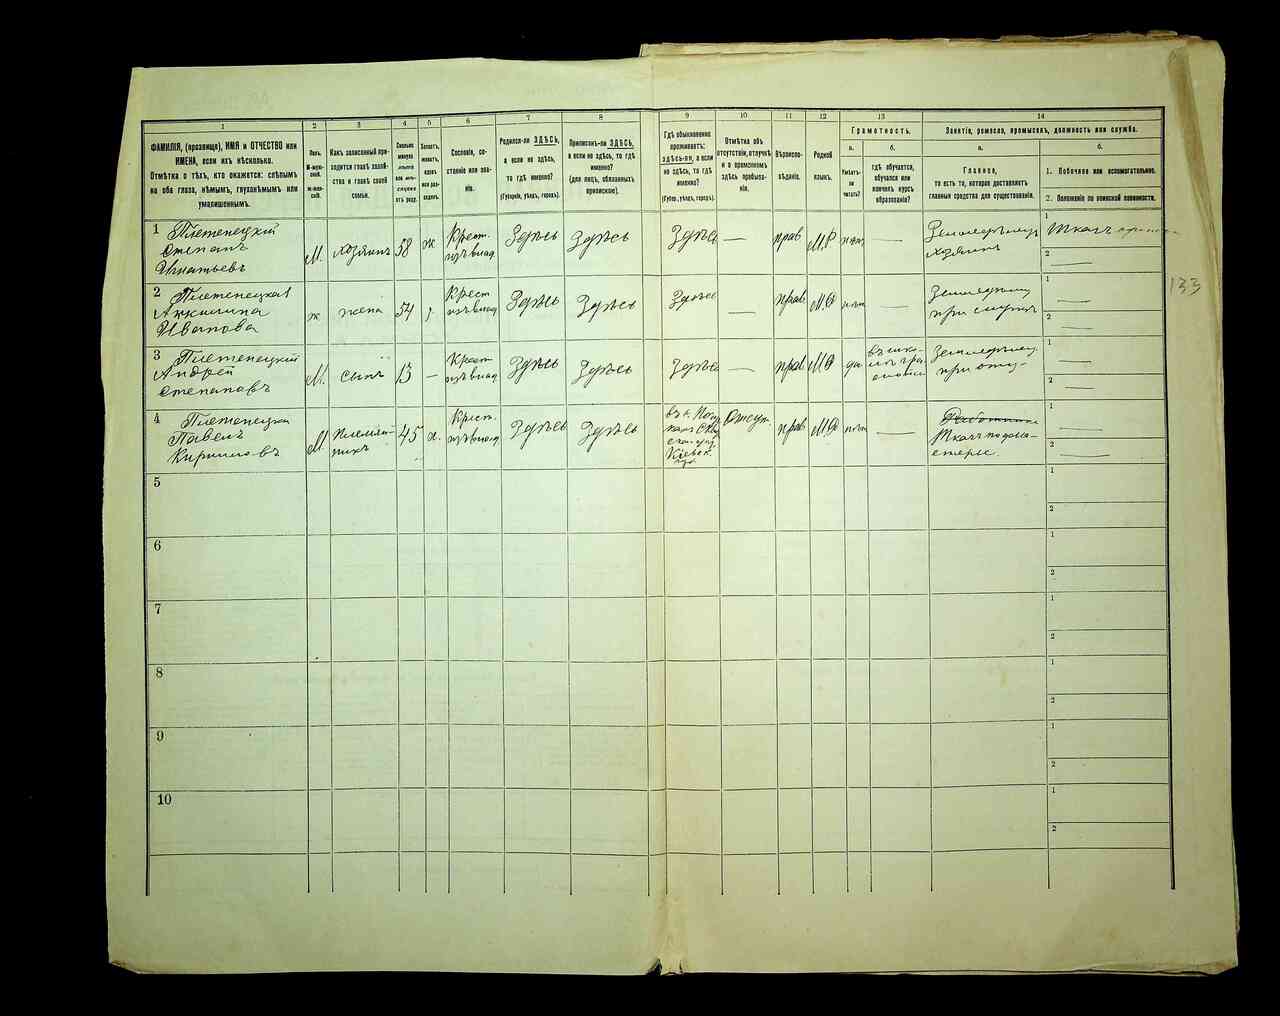 1
2
3
4
5
6
7
8
9
10
11
12
13
14
ФАМИЛІЯ, (прозвище), ИМЯ и ОТЧЕСТВО или
ИМЕНА, если ихъ нѣсколько.
Отмѣтка о тѣхъ, кто окажется: слѣпымъ
на оба глаза, нѣмымъ, глухонѣмымъ или
умалишеннымъ.
Полъ.
Какъ записанный при-
ходится главѣ хозяй-
ства и главѣ своей
семьи.
Сословіе, со-
стояніе или зва-
ніе.
Родился-ли ЗДѢСЬ,
а если не здѣсь,
то гдѣ именно?
(Губернія, уѣздъ, городъ).
Приписанъ-ли ЗДѢСЬ,
а если не здѣсь, то гдѣ
именно?
(для лицъ, обязанныхъ
припискою).
Гдѣ обыкновенно
проживаетъ:
ЗДѢСЬ-ЛИ, а если
не здѣсь, то гдѣ
именно?
(Губер., уѣздъ, городъ).
Отмѣтка объ
отсутствіи, отлучкѣ
и о временномъ
здѣсь пребыва-
ніи.
Вѣроиспо-
вѣданіе.
Родной
языкъ.
Грамотность.
а.
Умѣетъ-
ли
читать?
б.
гдѣ обучается,
обучался или
кончилъ курсъ
образованія?
Занятіе, ремесло, промыселъ, должность или служба.
а.
Главное,
то есть то, которое доставляетъ
главныя средства для существованія.
б.
1. Побочное или вспомогательное.
2. Положеніе по воинской повинности.
1
Плетенецкій
Степанъ
Игнатьевъ
М.
хозяинъ
58
ж
Крест.
изъ влад
Здѣсь
Здѣсь
Здѣсь
—
прав
М.Р
нѣт
—
хозяинъ
1
Ткачъ
2
—
2
Плетенецкая
Ивановa
ж
жена
54
Крест
изъ влад
Здѣсь
Здѣсь
Здѣсь
—
прав
М.Р
нѣт
—
при мужѣ
1
—
2
—
3
Плетенецкій
Андрей
Степановъ
М.
сынъ
13
—
Крест
изъ влад
Здѣсь
Здѣсь
Здѣсь
—
прав
МР
да
при отцѣ
1
—
2
—
4
Плетенецкій
Павелъ
Кириловъ
М.
Племян-
никъ
45
Крест.
изъ влад
Здѣсь
Здѣсь
Кіевск.
Отсут
прав
М.Р
нѣт
—
Ткачъ
1
—
2
—
133
5
1
2
6
1
2
7
1
2
8
1
2
9
1
2
10
1
2